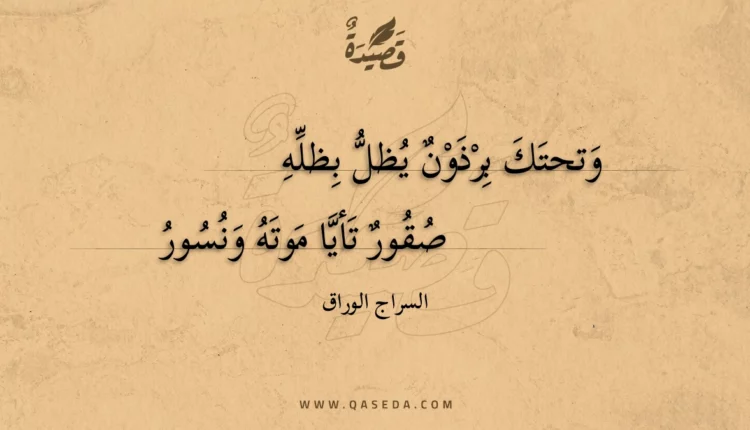 قَصِيدَةٌ
وَتحتَكَ بِرْذَوْنٌ يُظلُّ بِظلِّهِ
صُقُورٌ تَأيَّا مَوتَهُ وَنُسُورُ
السراج الوراق
WWW.QASEDA.COM